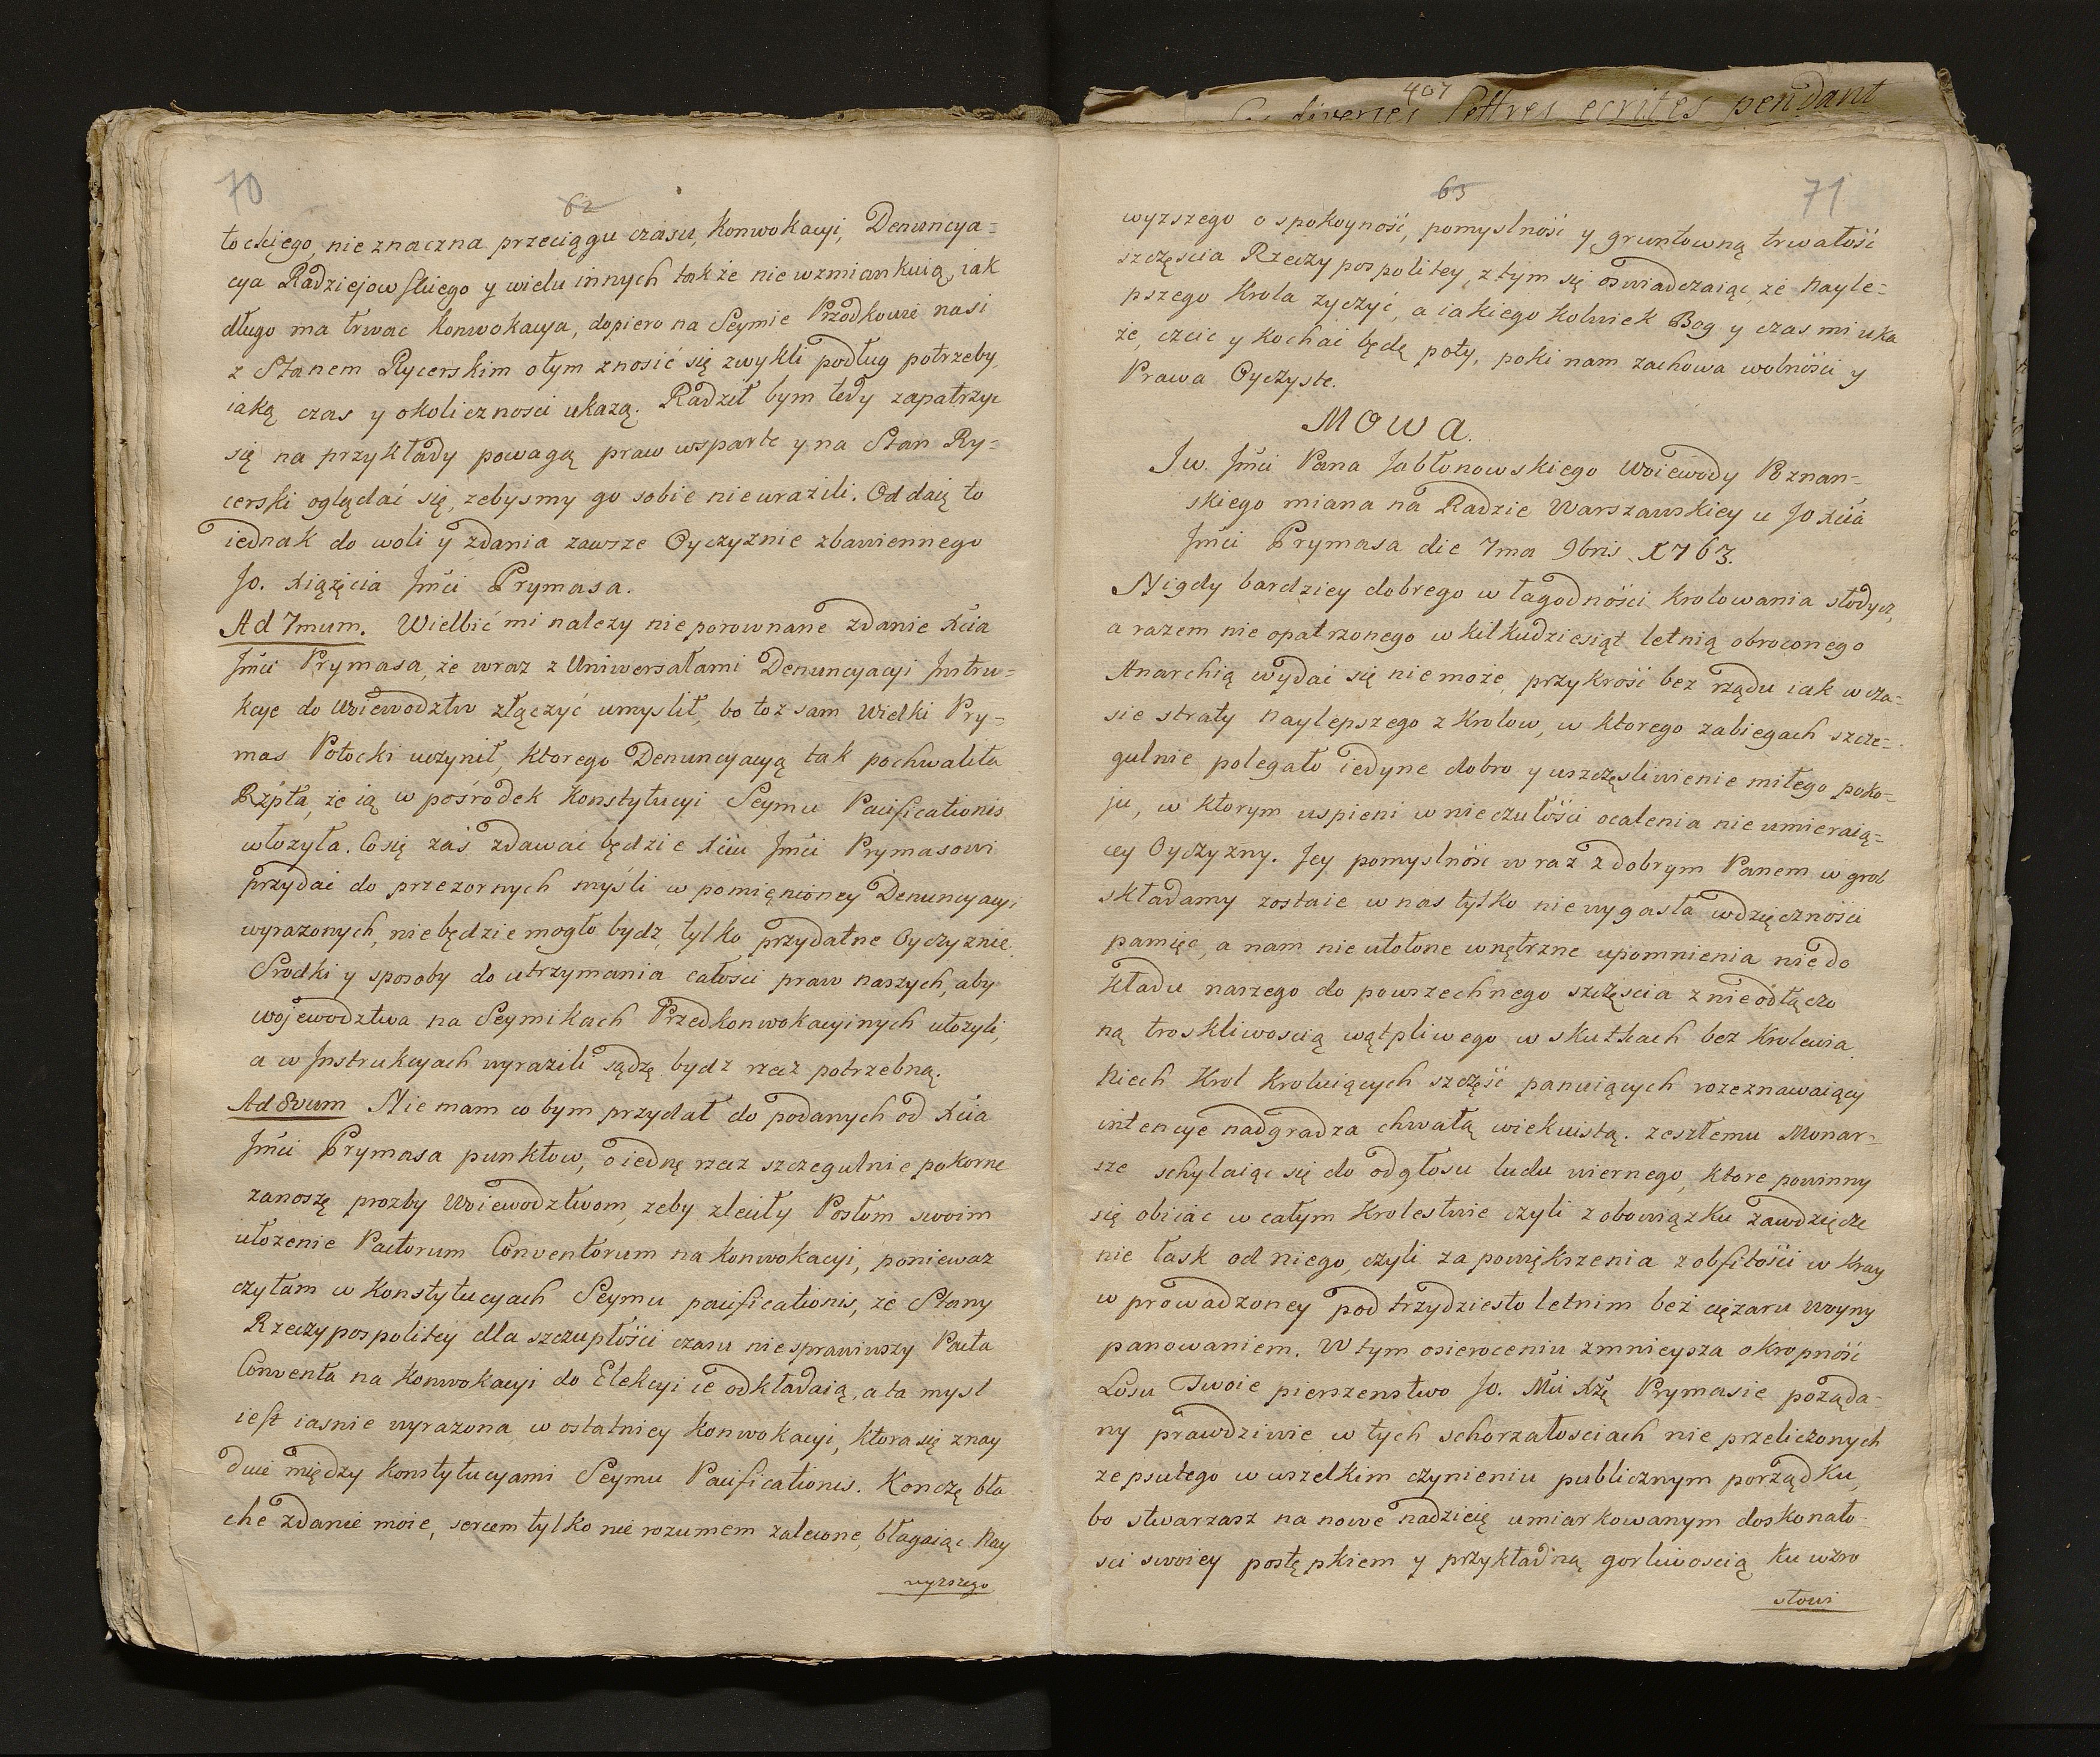 70
62
tockiego, nie znaczna przeciągu czasu, Konwokacyi, Denuncya=
cya Radziejowskiego y wielu innych także nie wzmiankuią, iak
długo ma trwac Konwokacya, dopiero na Seymie Przodkowie nasi
z Stanem Rycerskim o tym znosić się zwykli podług potrzeby,
iaką czas y okolicznosci ukazą. Radził bym tedy zapatrzyc
się na przykłady powagą praw wsparte y na Stan Ry=
cerski oglądać się, zebysmy go sobie nie urazili. Oddaię to
iednak do woli y zdania zawsze Oyczyznie zbawiennego
Jo. Xiążęcia Jmći Prymasa.
Ad 7mum. Wielbić mi nalezy nie porownane zdanie Xcia
Jmći Prymasa, że wraz z Uniwersałami Denuncyacyi Instru=
kcye do Woiewodztw złączyć umyslił, bo toz sam Wielki Pry=
mas Potocki uczynił, ktorego Denuncyacyą tak pochwaliła
Rzpta, że ią w pośrodek Konstytucyi Seymu Pacificationis
włozyła. Co się zaś zdawać będzie Xciu Jmći Prymasowi
przydać do przezornych myśli w pomięnioney Denuncyacyi
wyrazonych, nie będzie mogło bydz, tylko przydatne Oyczyznie.
Srodki y sposoby do utrzymania całosci praw naszych, aby
wojewodztwa na Seymikach Przedkonwokacyinych ułozyli,
a w Instrukcyach wyrazili sądzę bydz rzecz potrzebną.
Ad 8vum Nie mam co bym przydał do podanych od Xcia
Jmći Prymasa punktow, o iednę rzecz szczegulnie pokorne
zanoszę prozby Woiewodztwom, zeby zleciły Posłom swoim
ułozenie Pactorum Conventorum na Konwokacyi, poniewaz
czytam w Konstytucyach Seymu pacificationis, że Stany
Rzeczypospolitey dla szczupłości czasu nie sprawiwszy Pacta
Conventa na Konwokacyi do Elekcyi ie odkładaią, a ta mysl
iest iasnie wyrazona w ostatniey Konwokacyi, ktora się znay
duie między Konstytucyami Seymu Pacificationis. Konczę bła
che zdanie moie, sercem tylko nie rozumem zalecone, błagaiąc Nay
wyzszego
407
diverses Lettres ecrites pendant
63
71
wyzszego o spokoyność, pomyslność y gruntowną trwałość
szczęscia Rzeczypospolitey, z tym się oswiadczaiąc, że Nayle=
pszego Krola zyczyć, a iakiego kolwiek Bog y czas mi uka
że, czcic y kochać będę poty, poki nam zachowa wolności y
Prawa Oyczyste.
Mowa.
Jw. Jmći Pana Jabłonowskiego Woiewody Poznan=
skiego miana na Radzie Warszawskiey u Jo Xcia
Jmći Prymasa die 7ma 9bris 1763.
Nigdy bardziey dobrego w łagodności krolowania słodycz,
a razem nie opatrzonego w kilkudziesiąt letnią obroconego
Anarchią wydać się nie może, przykrość bez rządu iak w cza=
sie straty Naylepszego z Krolow, w ktorego zabiegach szcze=
gulnie polegało iedyne dobro y uszczęsliwienie miłego poko=
ju, w ktorym uspieni w nieczułości ocalenia nie umieraią=
cey Oyczyzny. Jey pomyslność wraz z dobrym Panem w grob
składamy zostaie w nas tylko nie wygasła wdzięczności
pamięc, a nam nie utolone wnętrzne upomnienia nie do
kładu naszego do powszechnego szczęscia z nieodłączo
ną troskliwoscią wątpliwego w skutkach bez Krolewia.
Niech Krol Kroluiących szczęść panuiących rozeznawaiący
intencye nadgradza chwałą wiekuistą. zeszłemu Monar=
sze schylaiąc się do odgłosu ludu wiernego, ktore powinny
się obiiac w całym Krolestwie czyli z obowiązku zawdzięcze
nie łask od niego, czyli za powiększenia z obfitości w Kray
w prowadzoney pod trzydziesto letnim beż cięzaru woyny
panowaniem. W tym osieroceniu zmnieysza okropność
Losu Twoie pierszenstwo Jo. Mći Xżę Prymasie poząda=
ny prawdziwie w tych schorzałosciach nie przeliczonych
zepsutego w wszelkim czynieniu publicznym porządku,
bo stwarzasz na nowe nadzieię umiarkowanym doskonało=
sci swoiey postępkiem y przykładną gorliwoscią ku wzro
stowi